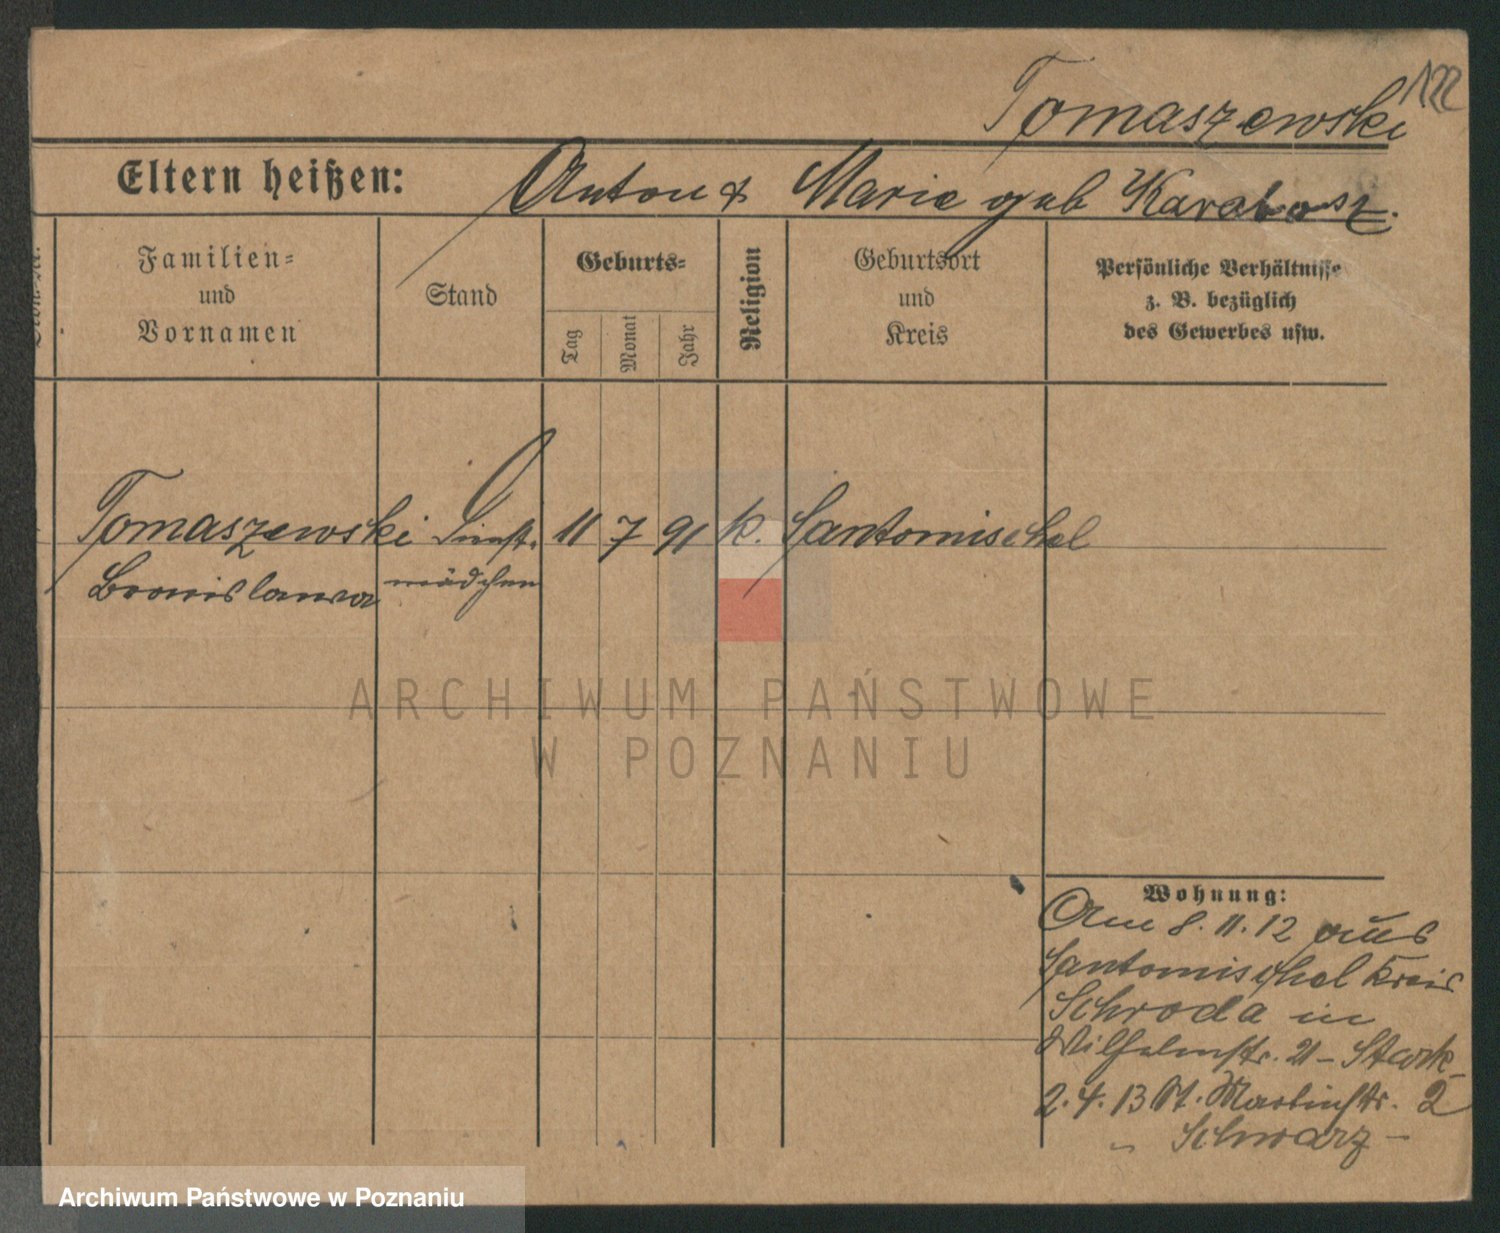 122
Tomaszewski
Eltern heißen: Anton & Marie geb Karalosz.
Familien=
und
Vornamen
Stand
Geburts=
Tag
Monat
Jahr
Religion
Geburtsort
und
Kreis
Persönliche Verhältnisse
z. B. bezüglich
des Gewerbes usw.
Tomaszewski Dienst- 11 7 91 k. Santomischel
Bronislawa mädchen
ARCHIWUM PAŃSTWOWE
W POZNANIU
Wohnung:
Am 8.11.12 aus
Santomischel Kreis
Schroda in
Wilhelmstr. 21 - Stark -
2.4.13 St. Martinstr. 2
" Schwarz -
Archiwum Państwowe w Poznaniu